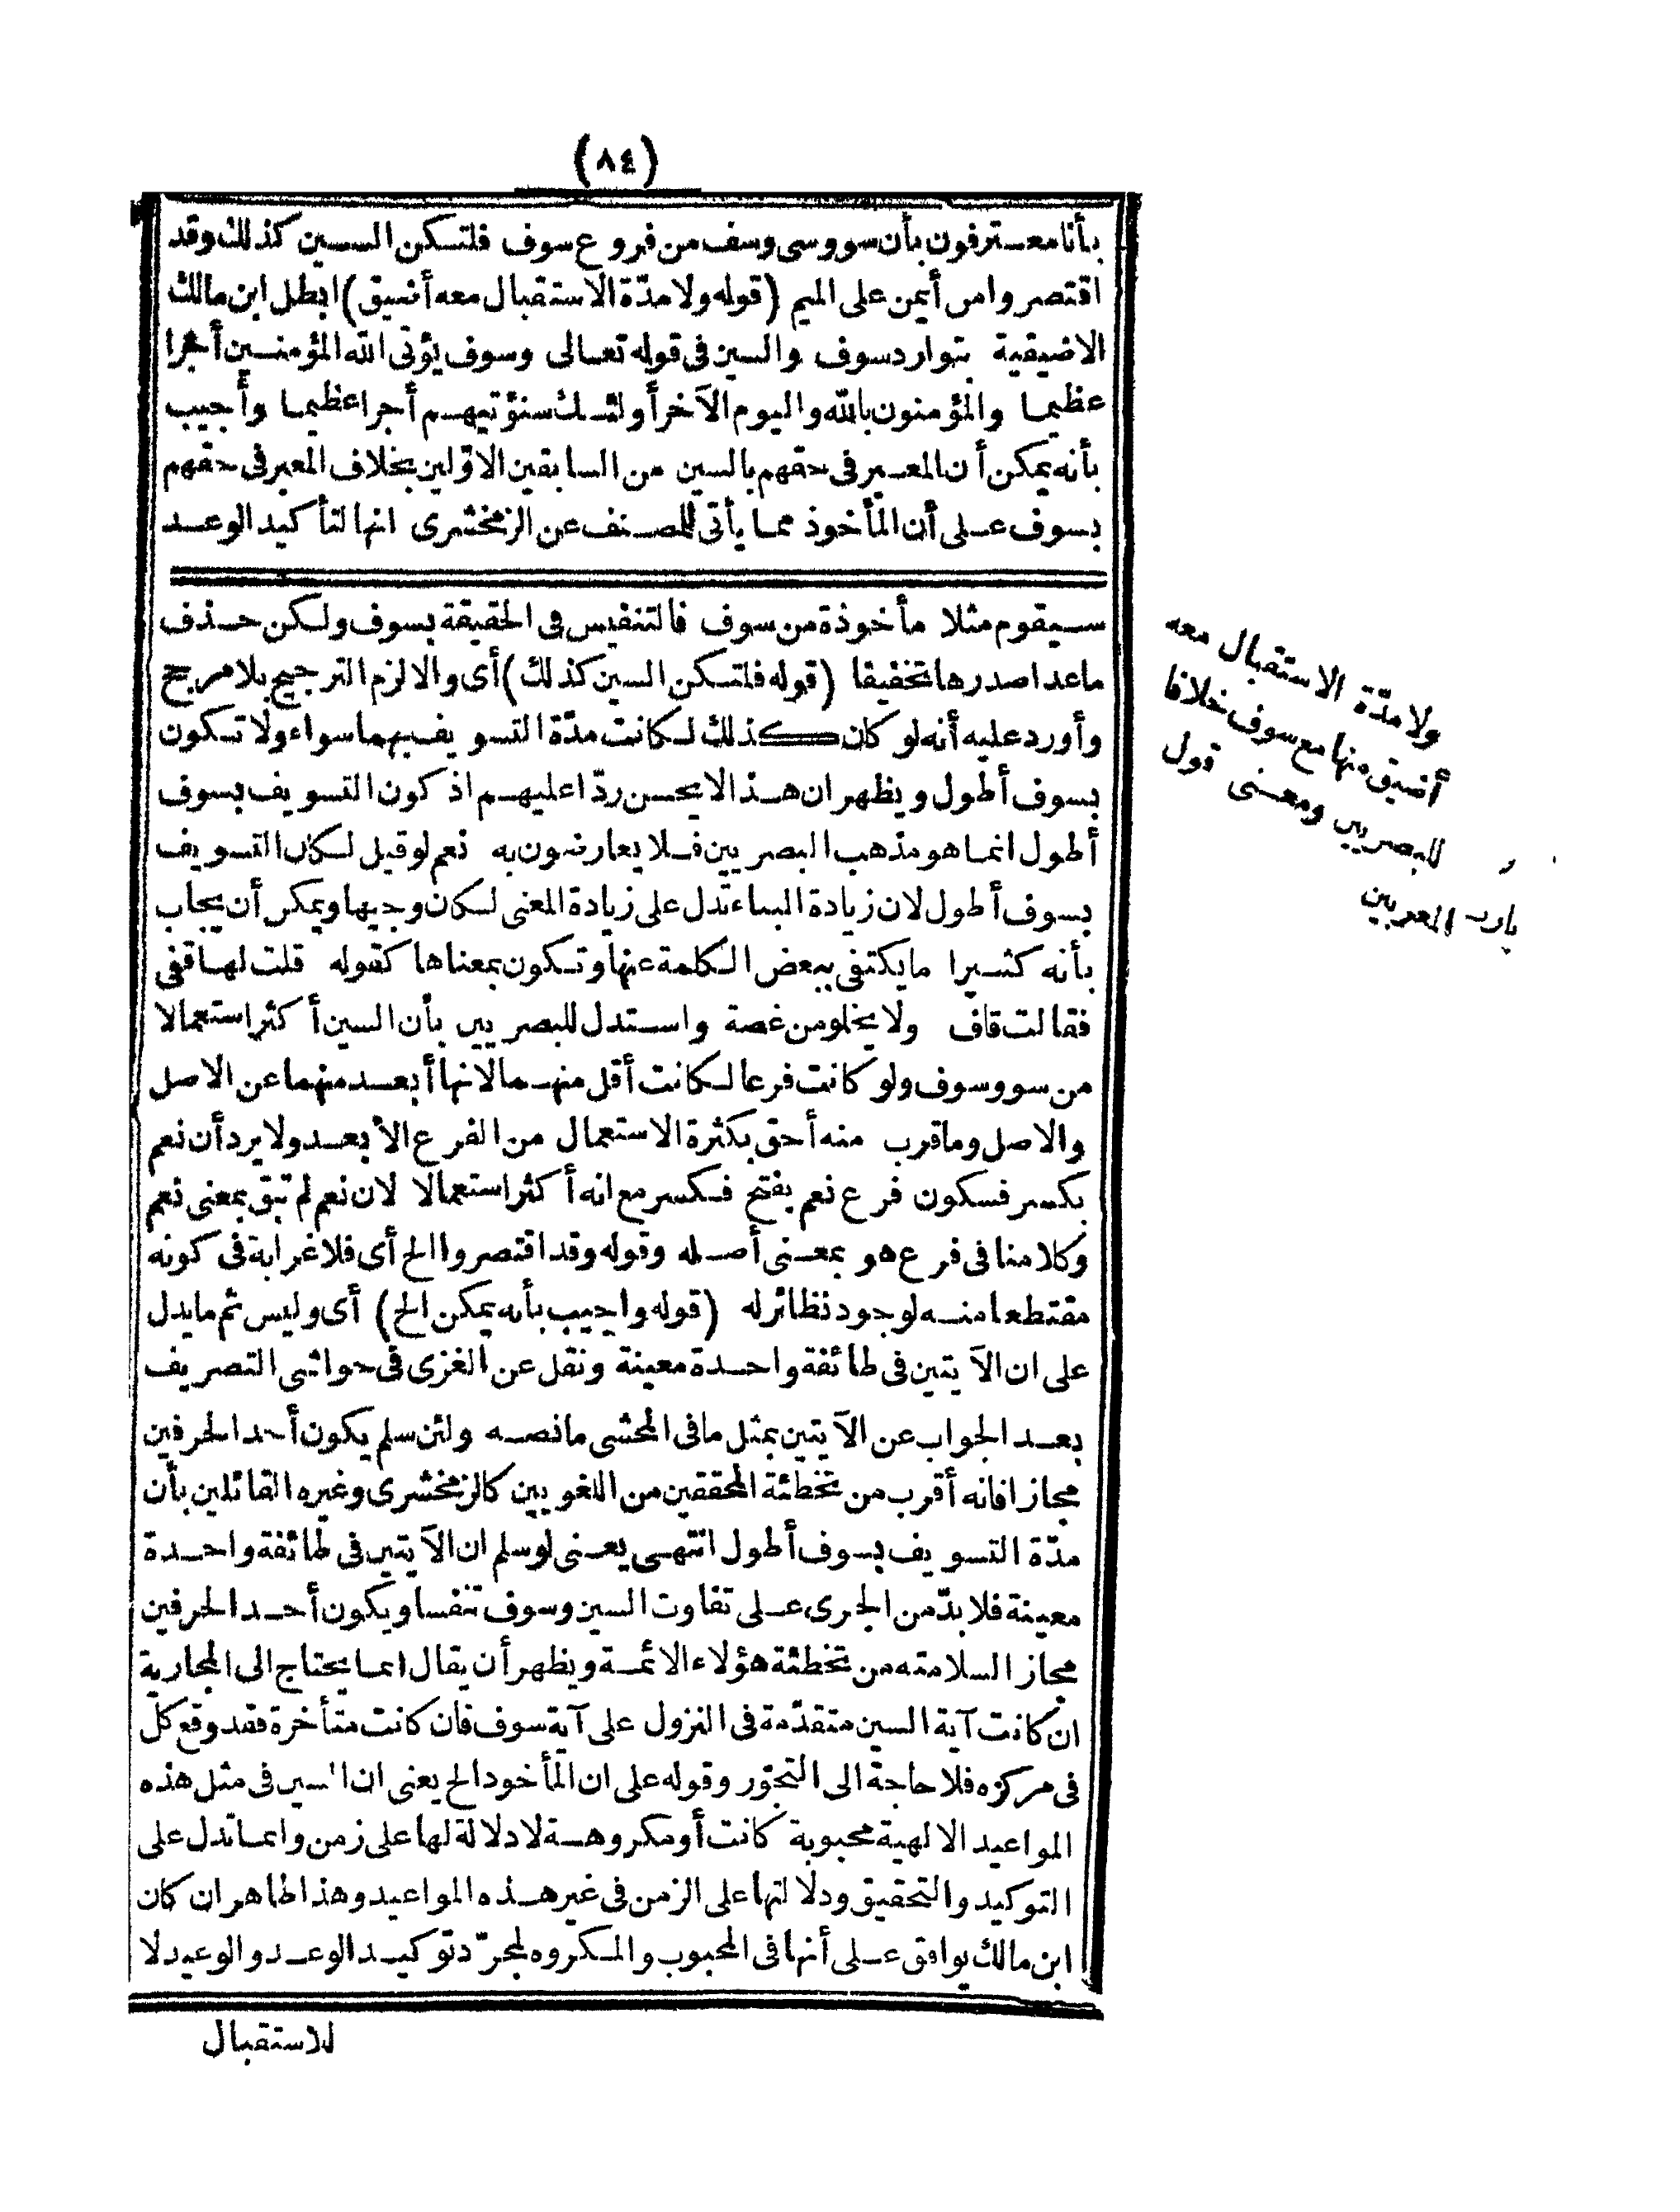 (٨٤)
بأنا معترفون بأن سو وسى وسف من فروع سوف فلتكن السين كذلك وقد
اقتصروا من أيمن على الميم (قوله ولا مدّة الاستقبال معه أضيق) ابطل ابن مالك
الاضيقية بتوارد سوف والسين فى قوله تعالى وسوف يؤتى الله المؤمنين أجرا
عظيما والمؤمنون بالله واليوم الآخر أولئك سنؤتيهم أجرا عظيما وأجيب
بأنه يمكن أن المعبر فى حقهم بالسين من السابقين الاوّلين بخلاف المعبر فى حقهم
بسوف على أن المأخوذ مما يأتى للمصنف عن الزمخشرى انها لتأكيد الوعد
سيقوم مثلا مأخوذة من سوف فالتنفيس فى الحقيقة بسوف ولكن حذف
ماعدا صدرها تخفيفا (قوله فلتكن السين كذلك) أى والا لزم الترجيح بلا مرجح
وأورد عليه أنه لو كان كذلك لكانت مدّة التسويف بهما سواء ولا تكون
بسوف أطول ويظهر ان هذا لا يحسن ردّا عليهم اذ كون التسويف بسوف
أطول انما هو مذهب البصريين فلا يعارضون به نعم لو قيل لكان التسويف
بسوف أطول لان زيادة البناء تدل على زيادة المعنى لكان وجيها ويمكن أن يجاب
بأنه كثيرا ما يكتفى ببعض الكلمة عنها وتكون بمعناها كقوله قلت لها قفى
فقالت قاف ولا يخلو من غصة واستدل للبصريين بأن السين أكثر استعمالا
من سو وسوف ولو كانت فرعا لكانت أقل منهما لانها أبعد منهما عن الاصل
والاصل وما قرب منه أحق بكثرة الاستعمال من الفرع الأبعد ولا يرد أن نعم
بكسر فسكون فرع نعم بفتح فكسر مع انه أكثر استعمالا لان نعم لم تبق بمعنى نعم
وكلامنا فى فرع هو بمعنى أصله وقوله وقد اقتصروا الخ أى فلا غرابة فى كونه
مقتطعا منه لوجود نظائر له (قوله واجيب بأنه يمكن الخ) أى وليس ثم ما يدل
على ان الآيتين فى طائفة واحدة معينة ونقل عن الغزى فى حواشى التصريف
بعد الجواب عن الآيتين بمثل ما فى المحشى ما نصه ولئن سلم يكون أحد الحرفين
مجازا فانه أقرب من تخطئة المحققين من اللغويين كالزمخشرى وغيره القائلين بأن
مدّة التسويف بسوف أطول انتهى يعنى لو سلم ان الآيتين فى طائفة واحدة
معينة فلا بدّ من الجرى على تفاوت السين وسوف تنفسا ويكون أحد الحرفين
مجاز السلامته من تخطئة هؤلاء الائمة ويظهر أن يقال انما يحتاج الى المجازية
ان كانت آية السين متقدّمة فى النزول على آية سوف فان كانت متأخرة فقد وقع كل
فى مركزه فلا حاجة الى التجوّز وقوله على ان المأخوذ الخ يعنى ان السين فى مثل هذه
المواعيد الالهية محبوبة كانت أو مكروهة لا دلالة لها على زمن وانما تدل على
التوكيد والتحقيق ودلالتها على الزمن فى غير هذه المواعيد وهذا ظاهر ان كان
ابن مالك يوافق على أنها فى المحبوب والمكروه لمجرّد توكيد الوعد والوعيد لا
للاستقبال
ولا مدّة الاستقبال معه
أضيق منها مع سوف خلافا
للبصريين ومعنى قول
المعربين